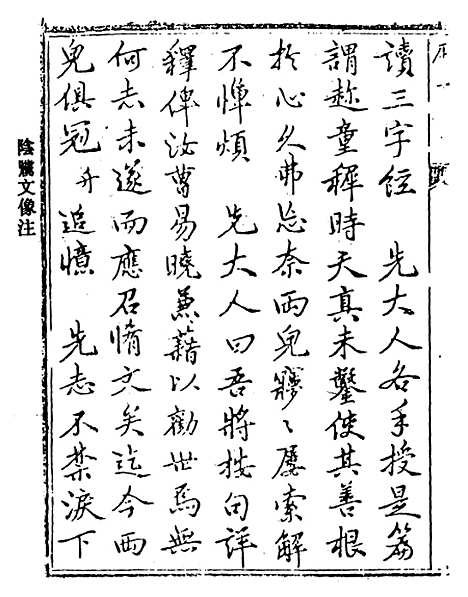 序
讀三字經　先大人各手授是篇
謂趁童穉時天真未鑿使其善根
於心久弗忘奈兩兒寥寥屢索解
不憚煩　先大人曰吾將按句詳
釋俾汝曹易曉兼藉以勸世焉無
何志未遂而應召脩文矣迄今兩
兒俱冠弁追憶　先志不禁淚下
陰騭文像注